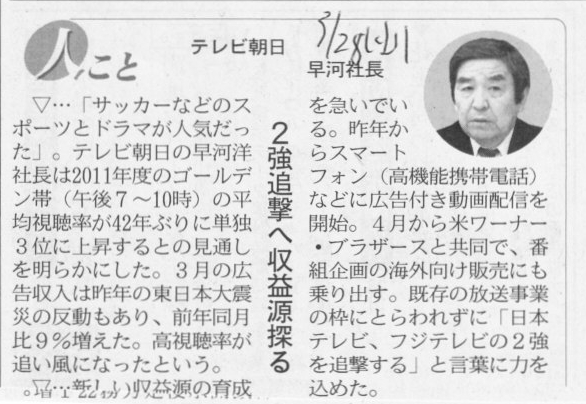 人こと
テレビ朝日
早河社長
2強追撃へ収益源探る
▽…「サッカーなどのス
ポーツとドラマが人気だっ
た」。テレビ朝日の早河洋
社長は2011年度のゴールデ
ン帯（午後7〜10時）の平
均視聴率が42年ぶりに単独
3位に上昇するとの見通し
を明らかにした。3月の広
告収入は昨年の東日本大震
災の反動もあり、前年同月
比9％増えた。高視聴率が
追い風になったという。
▽…新しい収益源の育成
を急いでい
る。昨年か
らスマート
フォン（高機能携帯電話）
などに広告付き動画配信を
開始。4月から米ワーナー
・ブラザースと共同で、番
組企画の海外向け販売にも
乗り出す。既存の放送事業
の枠にとらわれずに「日本
テレビ、フジテレビの2強
を追撃する」と言葉に力を
込めた。